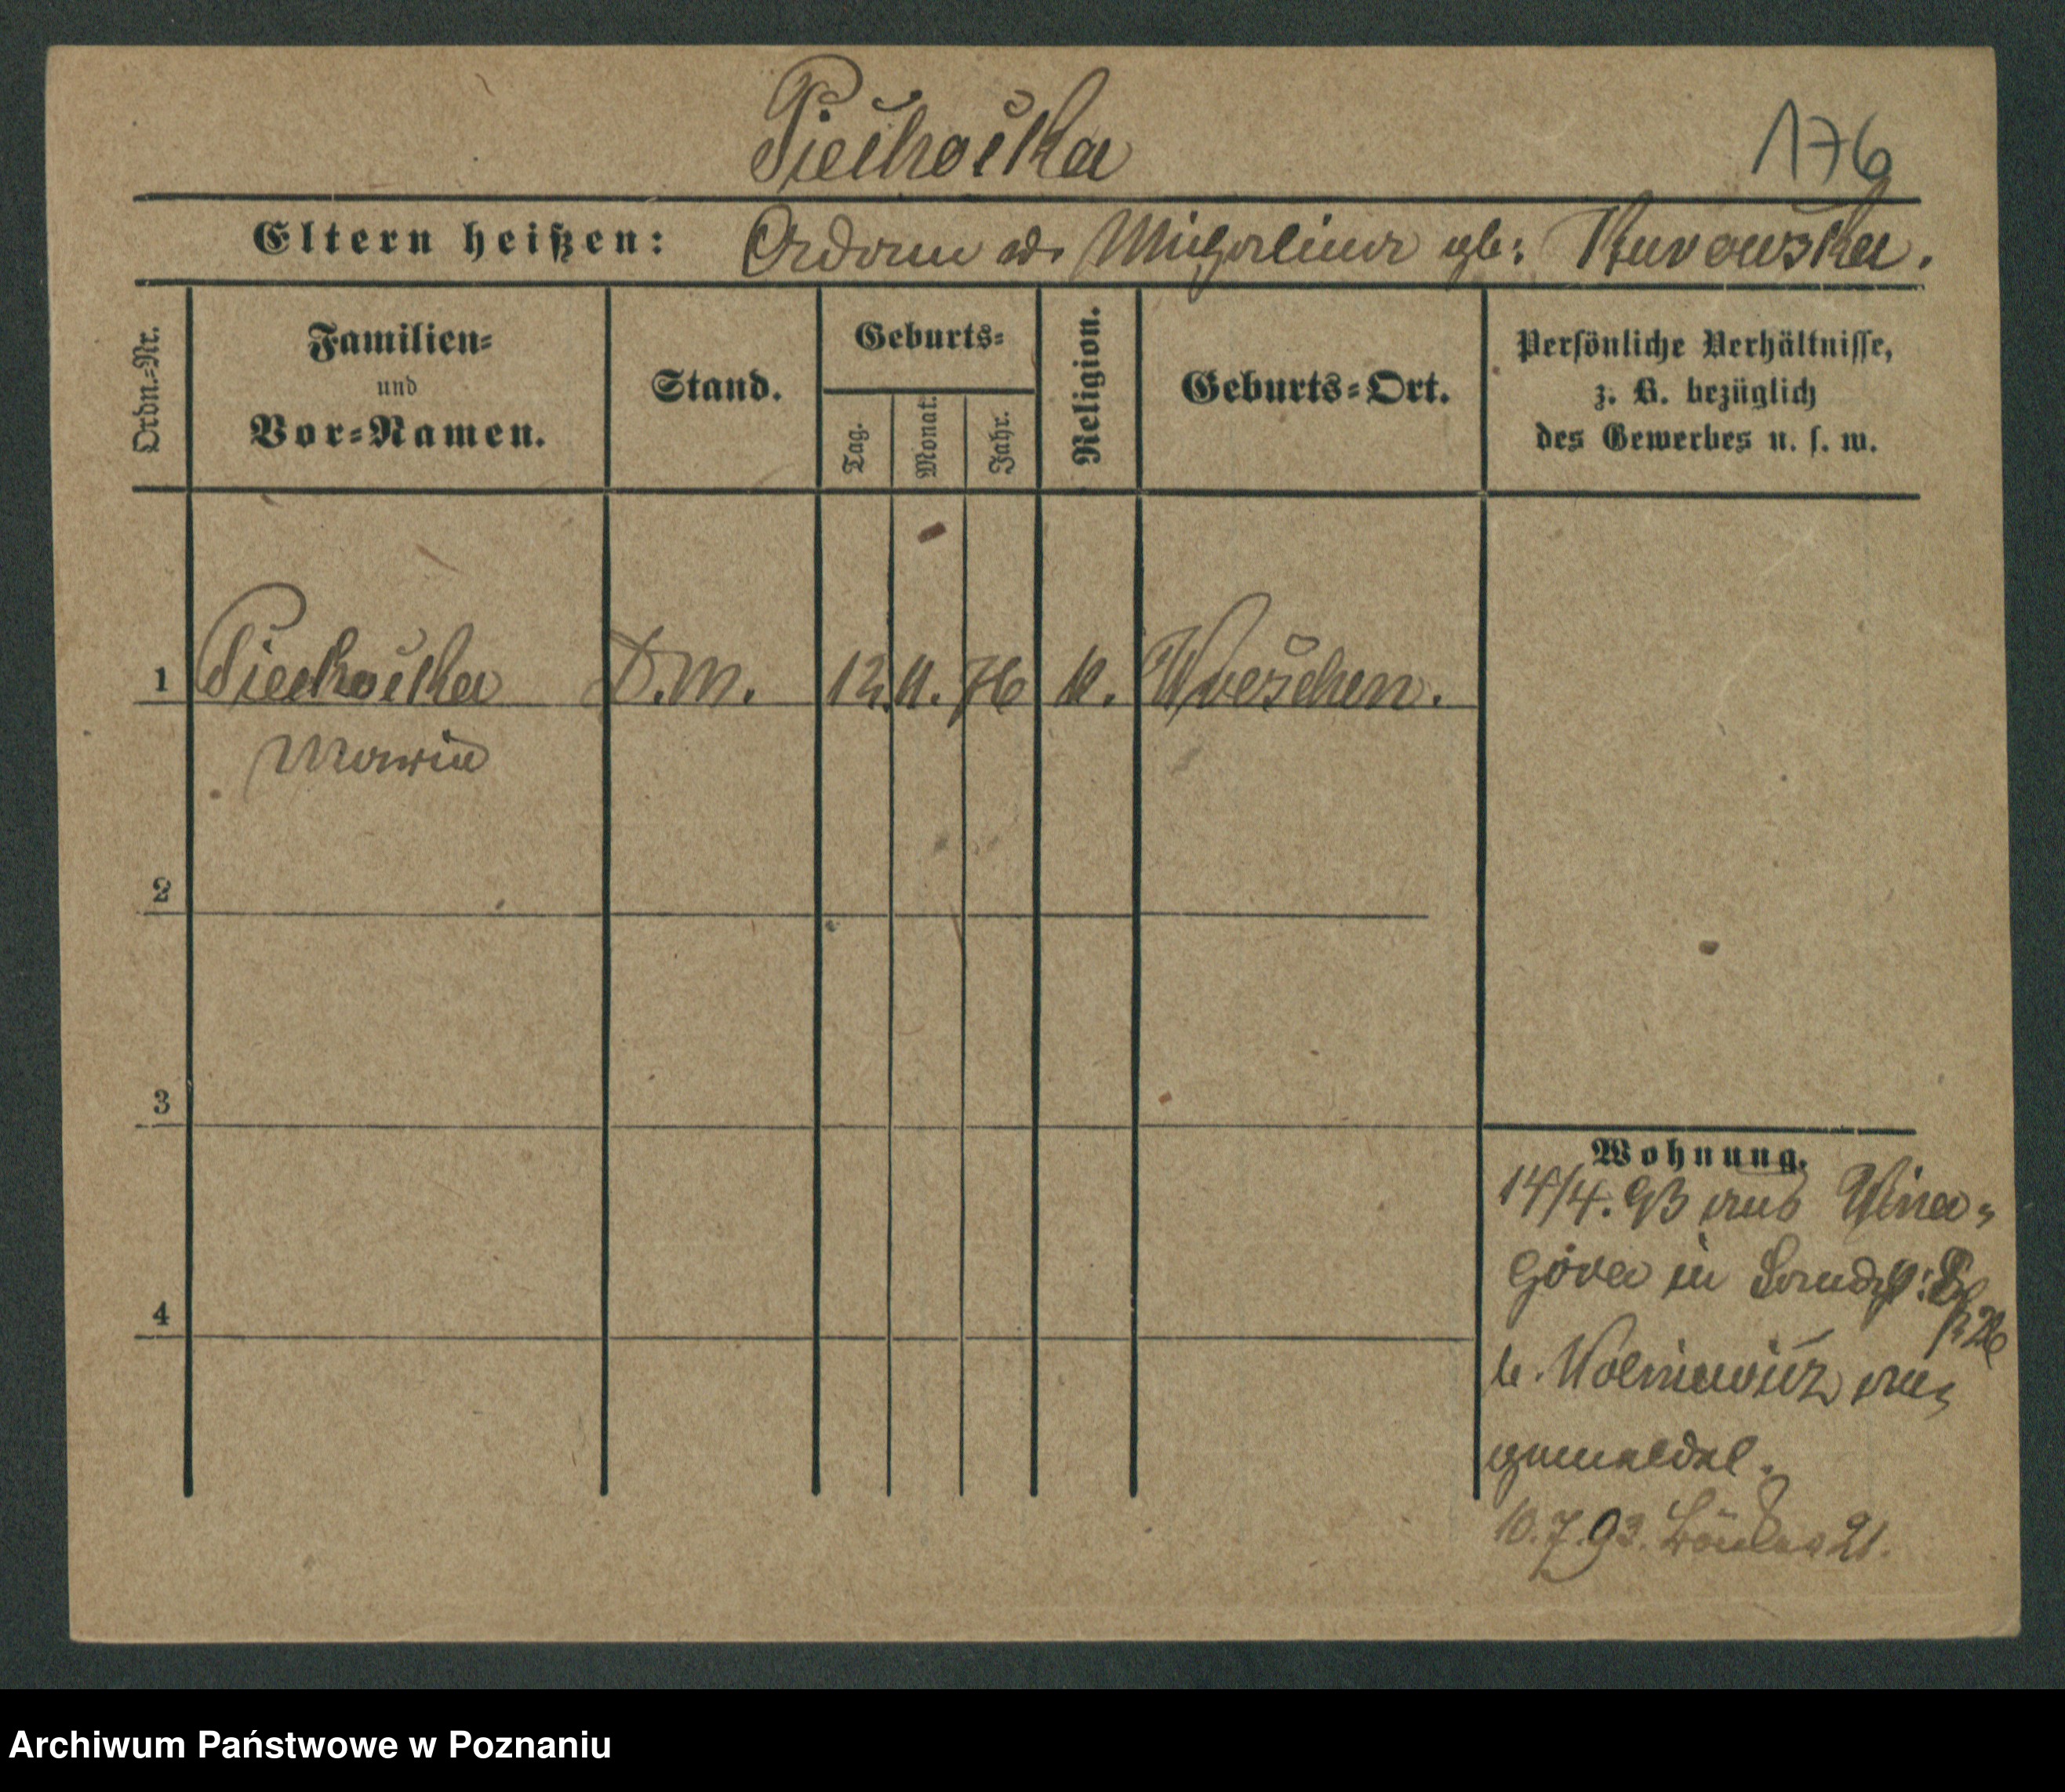 Piechocka
176
Eltern heißen: Adam u. Michalina gb:
Ordn.=Nr.
Familien=
und
Vor=Namen.
Stand.
Geburts=
Tag. Monat. Jahr.
Religion.
Geburts=Ort.
Persönliche Verhältnisse,
z. B. bezüglich
des Gewerbes u. s. w.
1 Piechocka D.M. 12. 11. 76 k. Wreschen.
Maria
2
3
4
Wohnung.
14/4. 93 aus Wina=
Góra in
b. Wolniewicz an=
gemeldet.
10.7.93. 21.
Archiwum Państwowe w Poznaniu